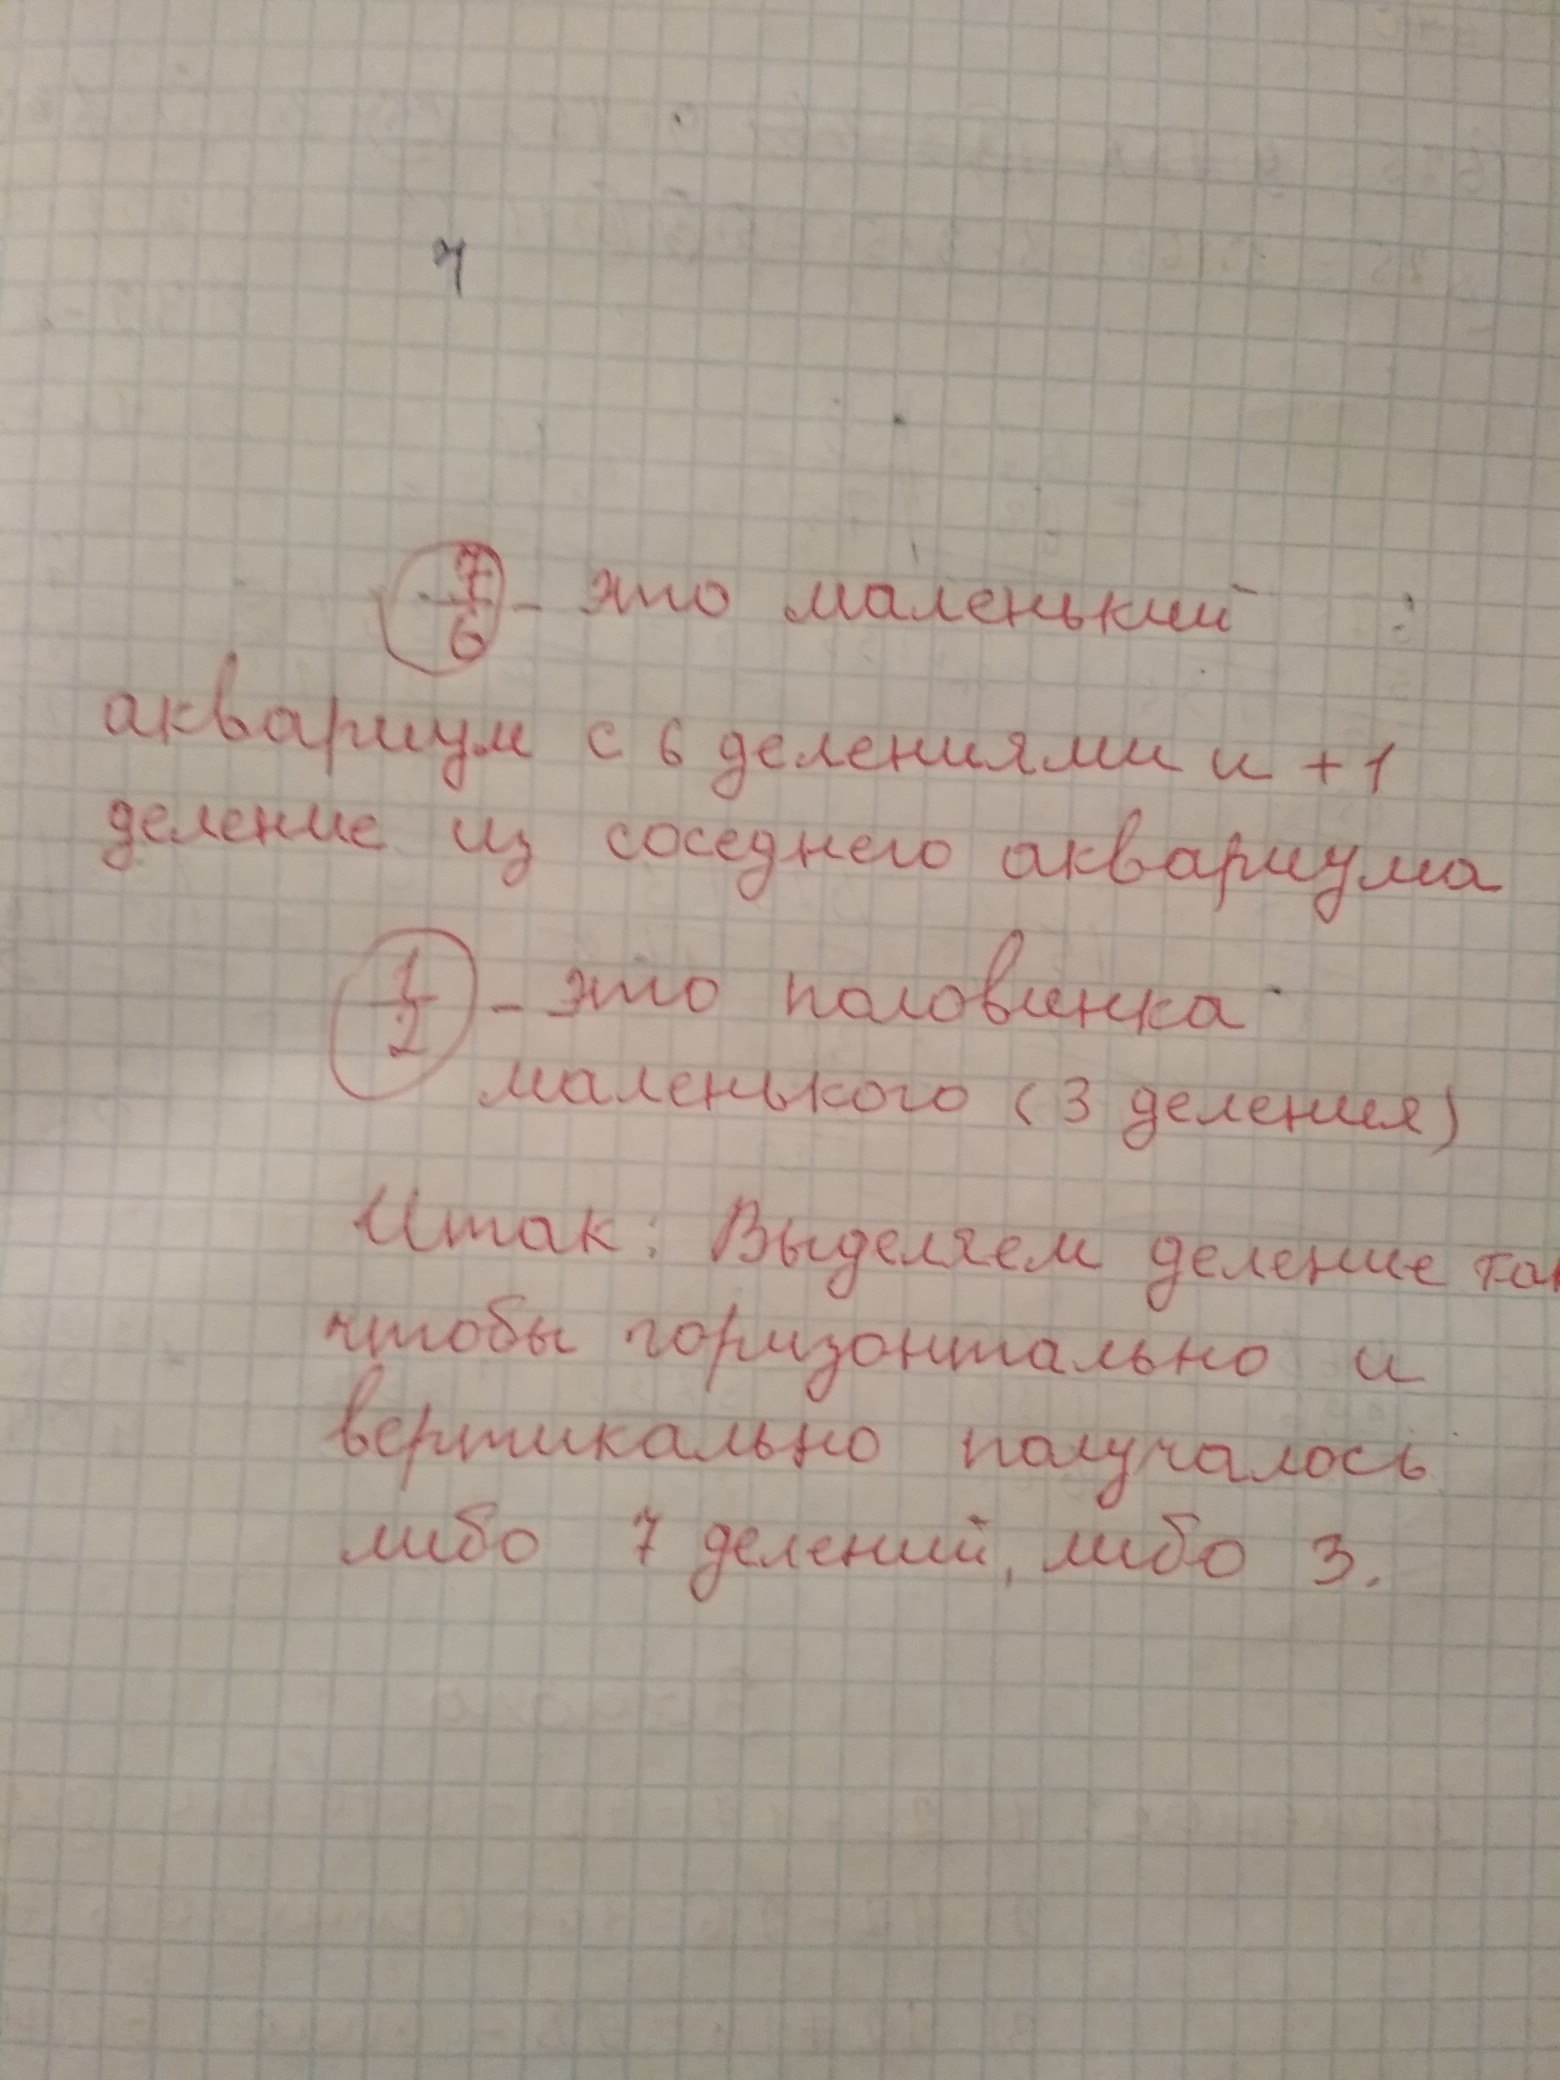 ч
7/6 - это маленький
аквариум с 6 делениями и + 1
деление из соседнего аквариума
1/2 - это половинка
маленького (3 деления)
Итак: Выделяем деление так
чтобы горизонтально и
вертикально получалось
либо 7 делений, либо 3.